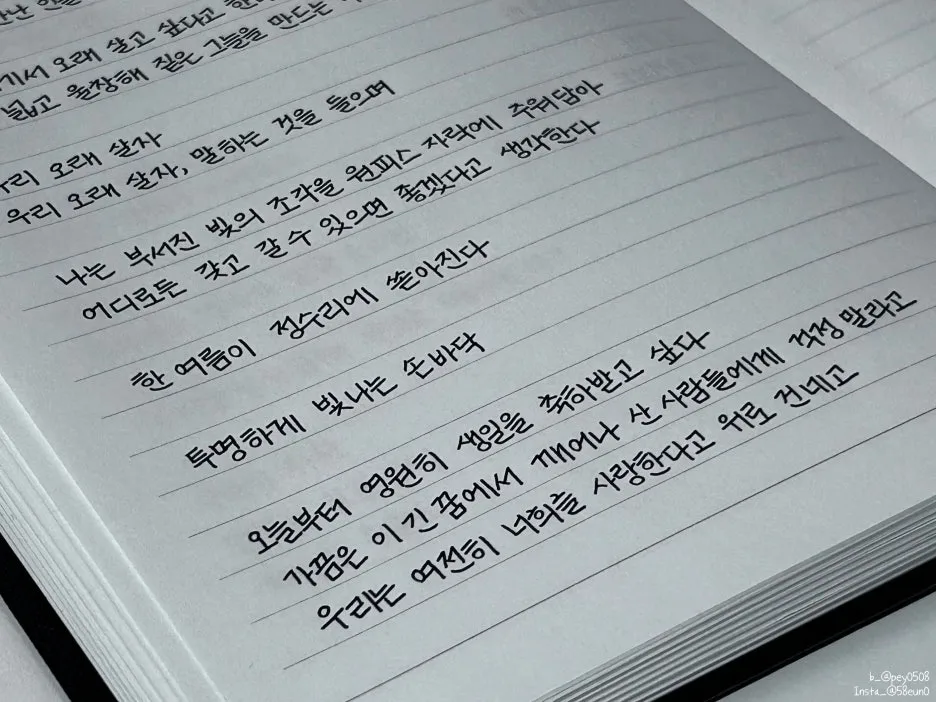 기서 오래 살고 싶다고
넓고 울창해 짙은 그늘을 만드는
우리 오래 살자
우리 오래 살자, 말하는 것을 들으며
나는 부서진 빛의 조각을 원피스 자락에 주워담아
어디로든 갖고 갈 수 있으면 좋겠다고 생각한다
한 여름이 정수리에 쏟아진다
투명하게 빛나는 손바닥
오늘부터 영원히 생일을 축하받고 싶다
가끔은 이 긴 꿈에서 깨어나 산 사람들에게 걱정 말라고
우리는 여전히 너희를 사랑한다고 위로 건네고
b_@pey0508
Insta_@58eun0